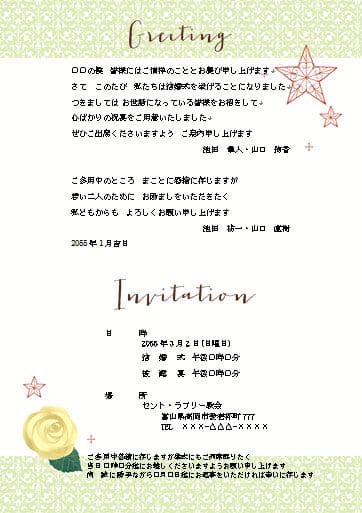 Greeting
〇〇の候　皆様にはご清祥のこととお慶び申し上げます
さて　このたび　私たちは結婚式を挙げることになりました
つきましては お世話になっている皆様をお招きして
心ばかりの祝宴をご用意いたしました
ぜひご出席くださいますよう　ご案内申し上げます
池田　隼人・山口
ご多用中のところ　まことに恐縮に存じますが
若い二人のために　お励ましをいただきたく
私どもからも　よろしくお願い申し上げます
池田　祐一・山口　直樹
20XX年1月吉日
Invitation
日　　時
3月2日(日曜日)
結　婚　式　午後〇時〇分
披　露　宴　午後〇時〇分
場　　所
セント・ラブリー教会
富山県高岡市 777
TEL　×××-△△△-××××
ご多用中恐縮に存じますが挙式にもご列席賜りたく
当日〇時〇分迄にお越しくださいますようお願い申し上げます
尚　誠に勝手ながら〇月〇日迄にお返事をいただければ幸いに存じます